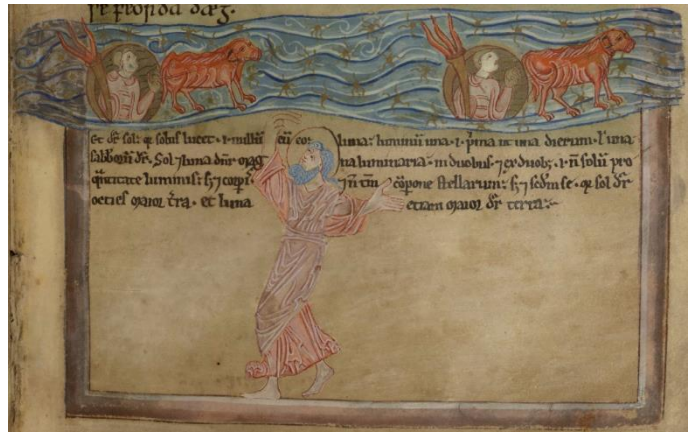 Et dr̄ sol: qr solus lucet · ⁊ nullus cū eo · luna: luminū una · i · pͥma ut una dierum · i una
sabbatorū dr̄ · Sol ⁊ luna dn̄r mag na luminaria · in duobus · ⁊ ex duobꝫ · ⁊ n̄ solū pro
q̄titate luminis: sꝫ ⁊ corpis ⁊ n̄ tm̄ cōpone stellarum: sꝫ ⁊ sedm se · qr sol dr̄
octies maior t̄ra · et luna etiam maior dr̄ terra